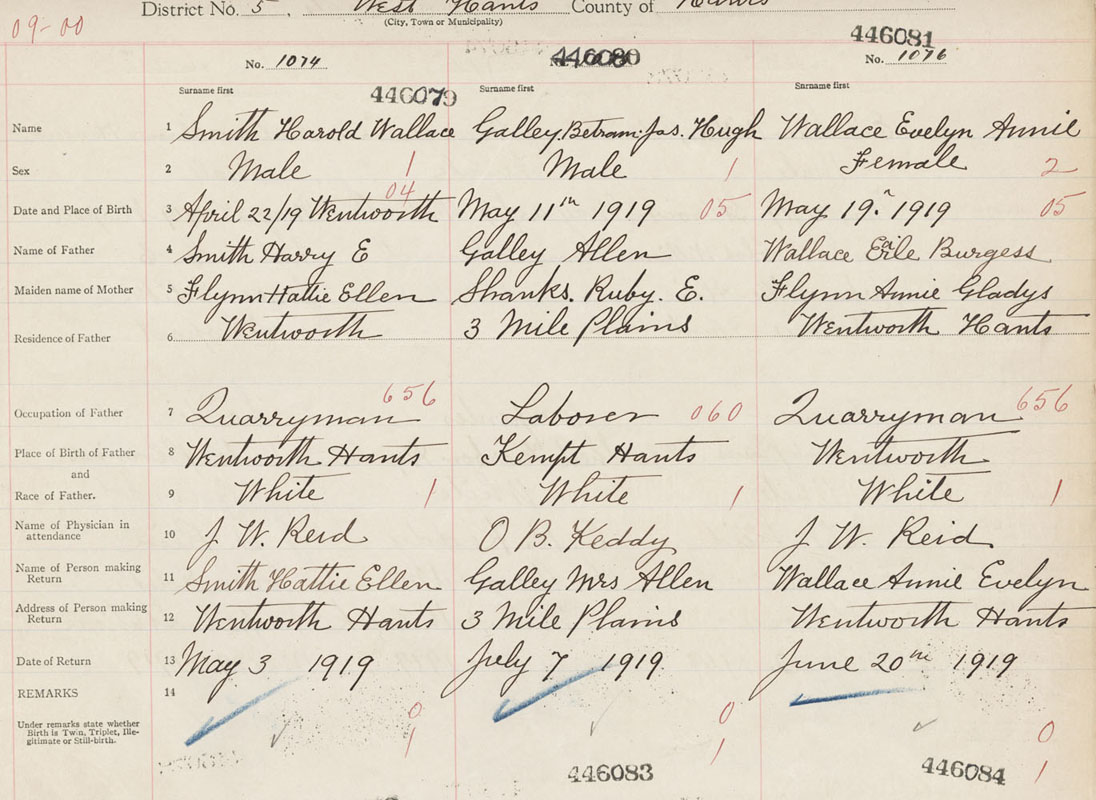 District No. 5, West Hants County of Hants
(City, Town or Municipality)
09-00
446080 446081
No. 1074 No. 1076
Surname first Surname first Surname first
446079
Name 1 Smith Harold Wallace Galley, Betram. Jas. Hugh Wallace Evelyn Annie
Sex 2 Male 1 Male 1 Female 2
04
Date and Place of Birth 3 April 22/19 Wentworth May 11th 1919 05 May 19. 1919 05
Name of Father 4 Smith Harry E Galley Allen Wallace Earle Burgess
Maiden name of Mother 5 Flynn Hattie Ellen Shanks. Ruby. E. Flynn Annie Gladys
Residence of Father 6 Wentworth 3 Mile Plains Wentworth Hants
656 656
Occupation of Father 7 Quarryman Laborer 060 Quarryman
Place of Birth of Father 8 Wentworth Hants Kempt Hants Wentworth
and
Race of Father. 9 White 1 White 1 White 1
Name of Physician in
attendance 10 J. W. Reid O. B. Keddy J. W. Reid
Name of Person making
Return 11 Smith Hattie Ellen Galley Mrs Allen Wallace Annie Evelyn
Address of Person making
Return 12 Wentworth Hants 3 Mile Plains Wentworth Hants
Date of Return 13 May 3 1919 July 7 1919 June 20th 1919
REMARKS 14
Under remarks state whether
Birth is Twin, Triplet, Ille-
gitimate or Still-birth.
0 0 0
1 1 1
446083 446084